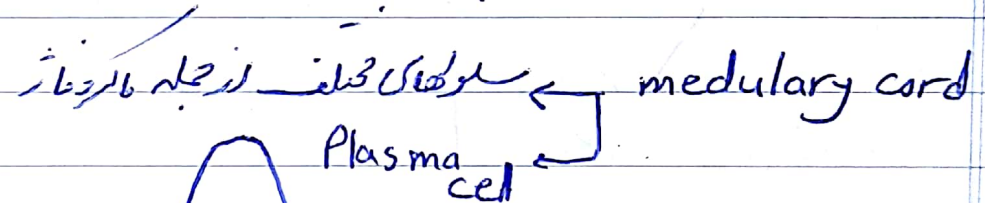 medulary cord سلولهای مختلف از جمله ماکروفاژ
Plasma
cell